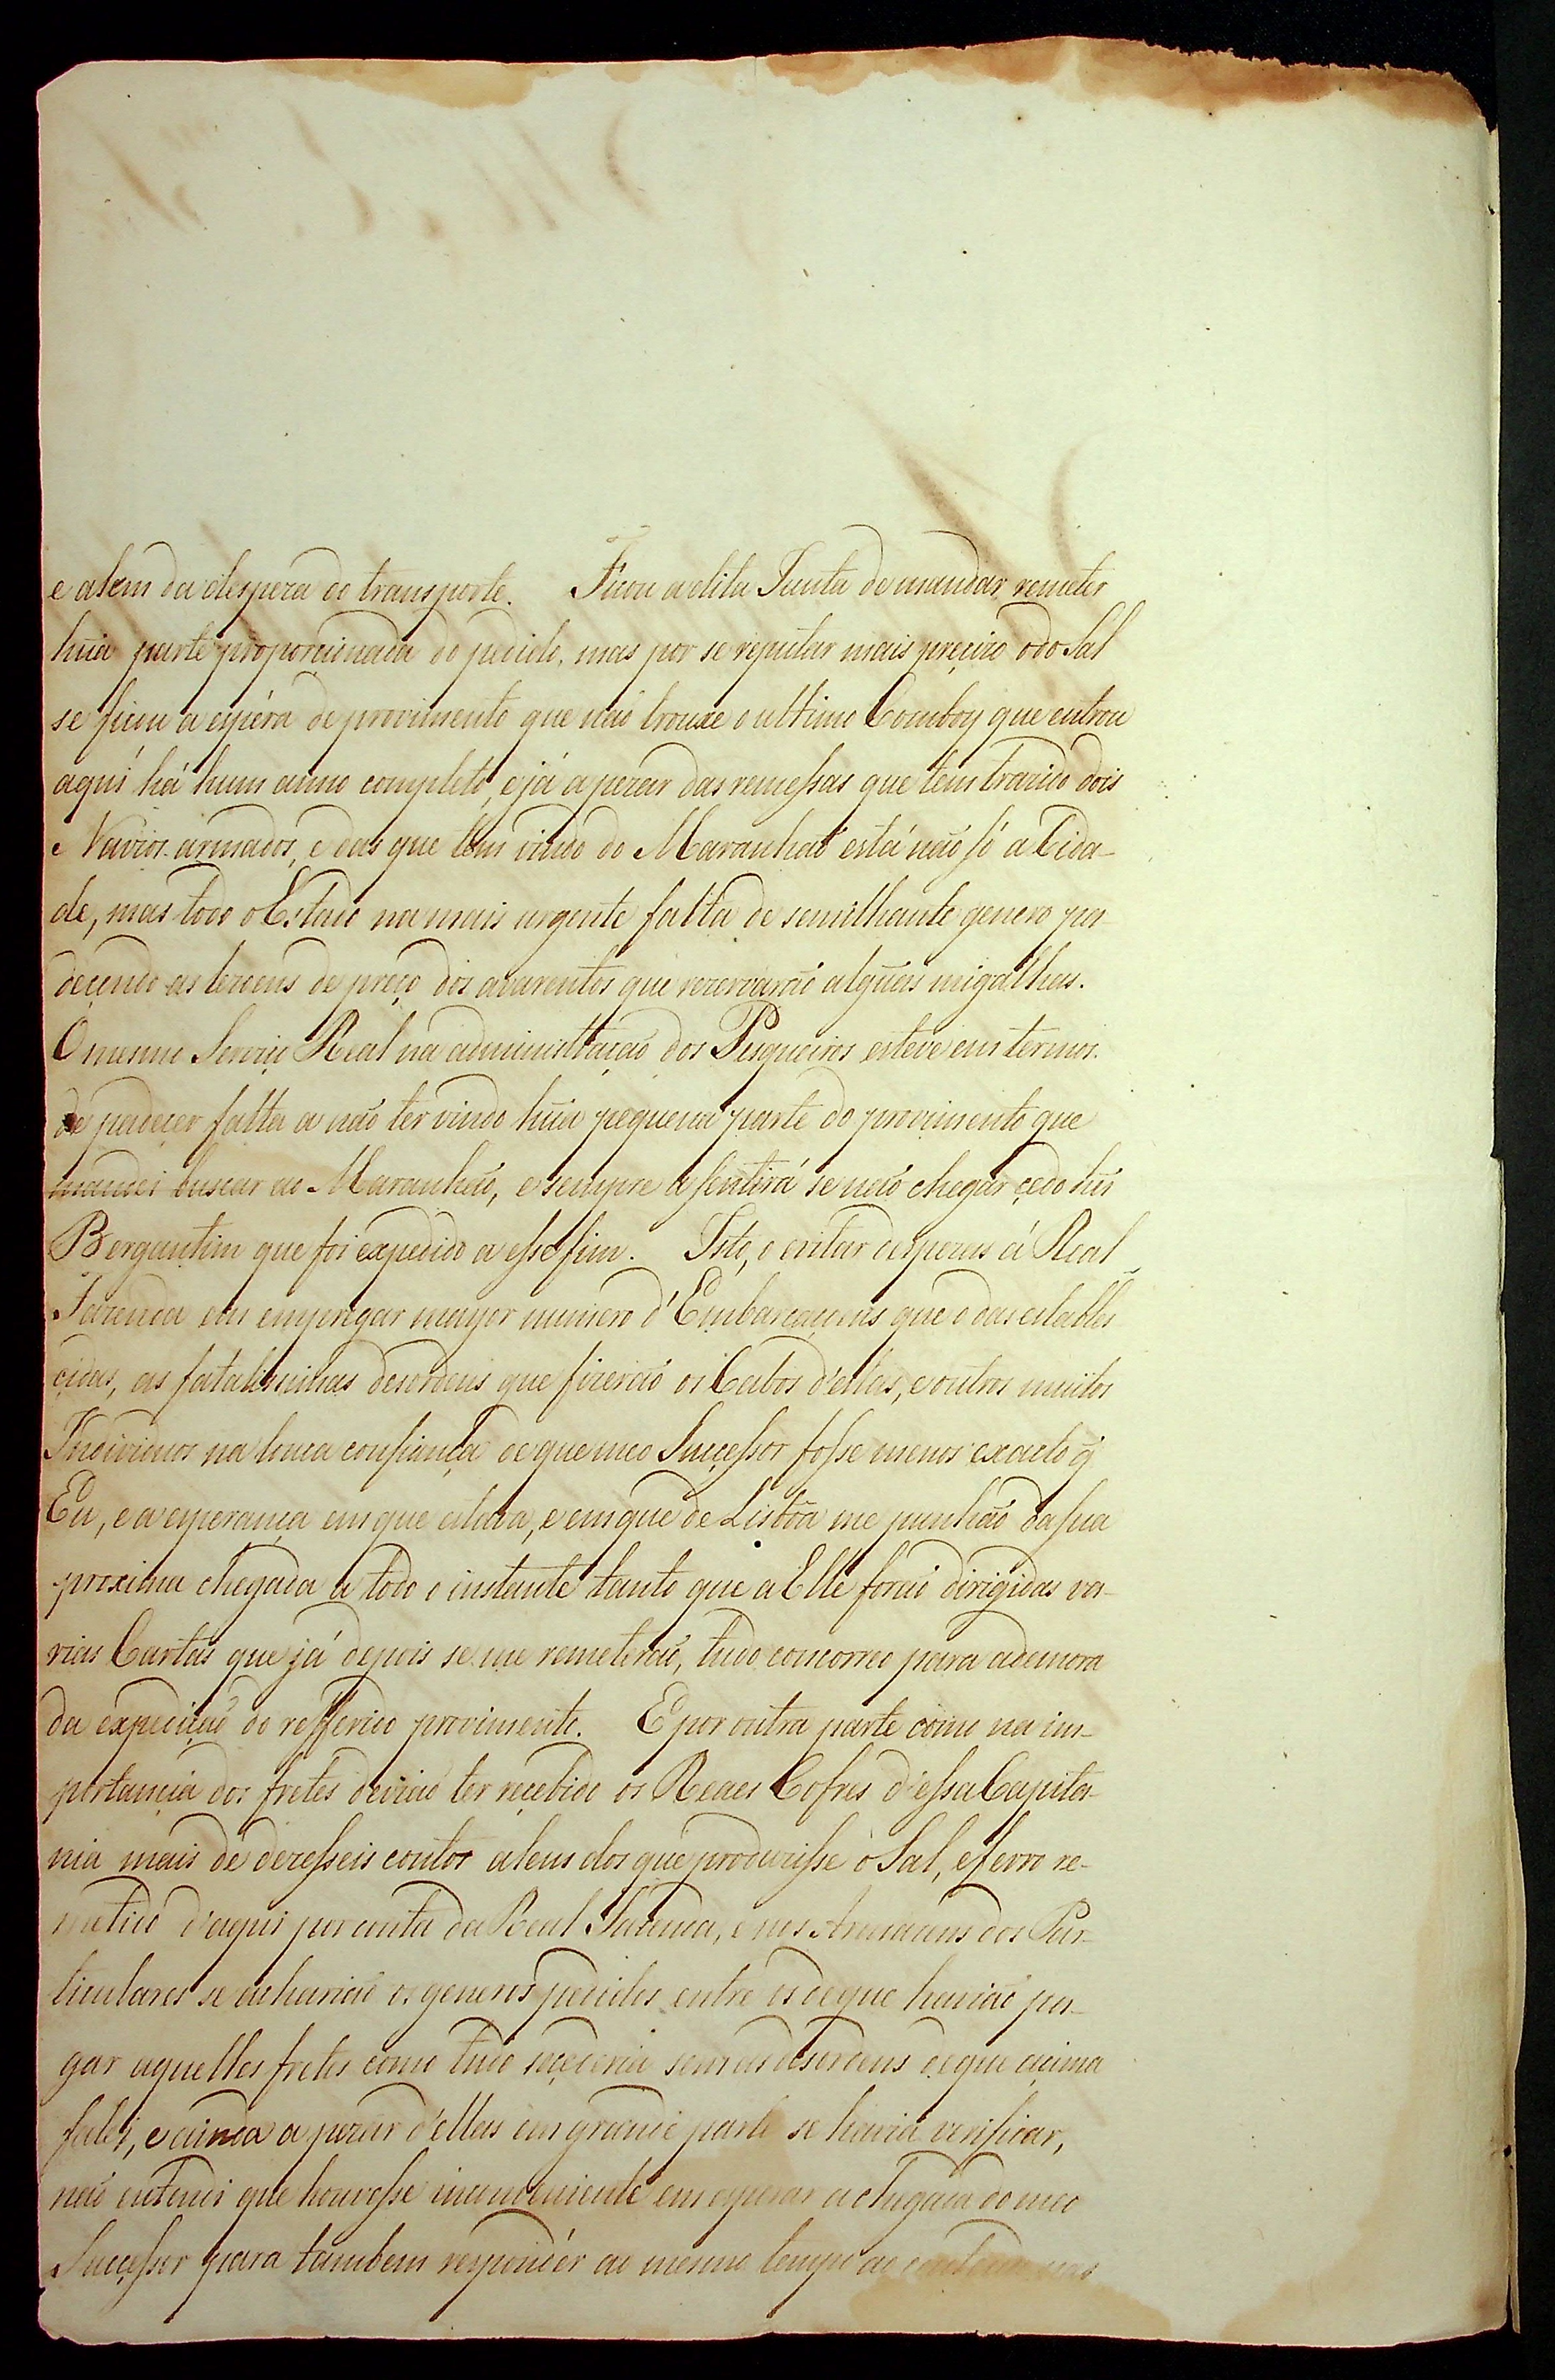 e alem da despeza do transporte. Ficou a dita Junta de mandar remeter
hũa parte proporcionada do pedido, mas por se reputar mais precizo o do Sal
se ficou a espéra de provimento que não trouxe o ultimo Comboy que entrou
aqui há hum anno completo, e já apezar das remessas que tem trazido dois
Navios armados, e das que tem vindo do Maranhaõ está não só a Cida-
de, mas todo o Estado na mais urgente falta de semilhante genero pa-
decendo as                de preço dos avarentos que rezervaraõ algũas migalhas.
O mesmo Serviço Real na administraçaõ dos Pesqueiros esteve em termos
de padecer falta a naõ ter vindo hũa pequena parte do provimento que
mandei buscar ao Maranhaõ, e sempre a sentirá se naõ chegar cedo hũ
Bergantim que foi expedido a esse fim. Isto, o evitar despezas á Real
Fazenda em empregar mayor numero d'Embarcaçoens que o das estabele
cidas, as fatalissimas desordens que fizeraõ os Cabos d'ellas, e outros muitos
Individuos na louca confiança de que meo Sucçessor fosse menos exacto q̃
Eu, e a esperança em que estava, e em que de Lisbõa me punhaõ da sua
proxima chegada a todo o instante tanto que a Elle foraõ dirigidas va-
rias Cartas que já depois se me remeteraõ, tudo concorreo para a demora
da expediçaõ do refferido provimento. E por outra parte como na im-
portancia dos fretes deviaõ ter recebido os Reaes Cofres d'essa Capita-
nia mais de dezesseis contos alem dos que produzisse o Sal, e ferro re-
metido d'aqui por conta da Real Fazenda, e nos Armazens dos Par-
ticulares se achariaõ os generos pedidos entre os de que haviaõ pa-
gar aquelles fretes como tudo sucederia sem as desordens de que acima
falei, e ainda apezar d'ellas em grande parte se havia verificar,
naõ entendi que houvesse inconveniente em esperar a chegada do meo
Sucçessor para tambem respondér ao mesmo tempo ao